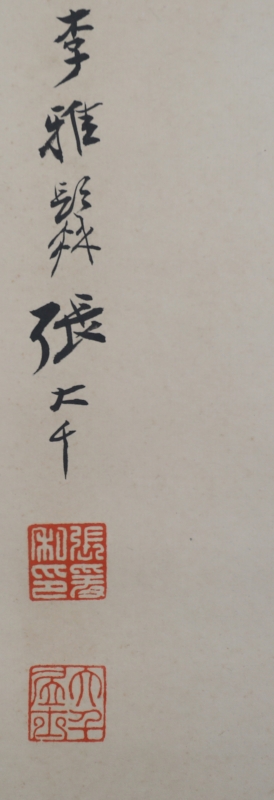 李雅張大千
張爰私印
大千居士